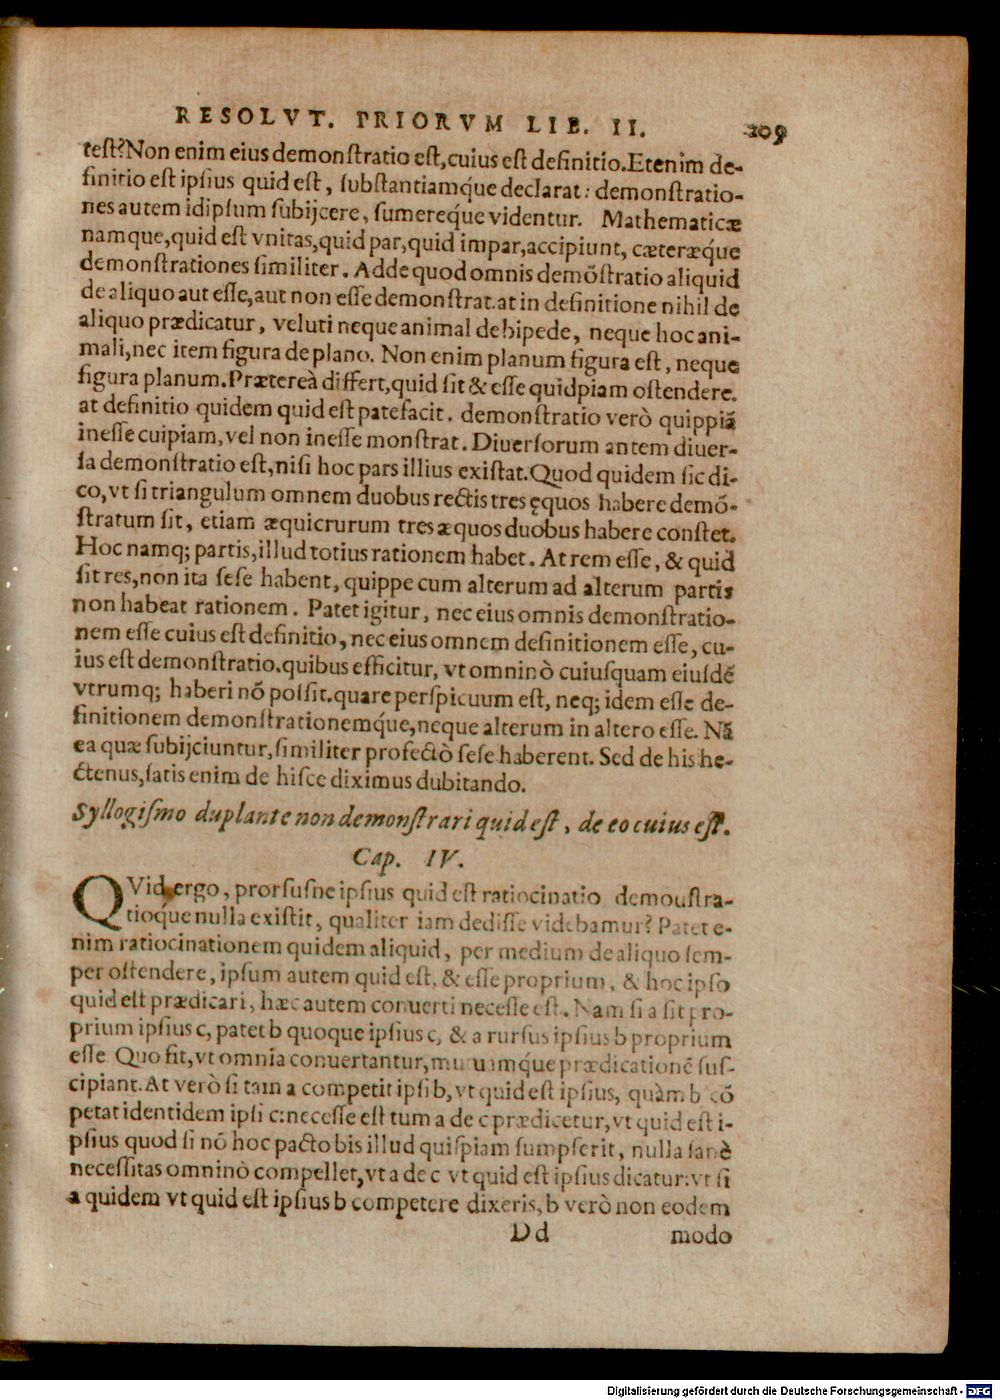 RESOLVT. PRIORVM LIB. II. 209
test? Non enim eius demonſtratio eſt, cuius eſt definitio. Etenim de-
finitio eſt ipſius quid eſt, ſubſtantiamq́ue declarat: demonſtratio-
nes autem idipſum ſubijcere, ſumereq́ue videntur. Mathematicæ
namque, quid eſt vnitas, quid par, quid impar, accipiunt, cæteræq́ue
demonſtrationes ſimiliter. Adde quod omnis demõſtratio aliquid
de aliquo aut eſſe, aut non eſſe demonſtrat. at in definitione nihil de
aliquo prædicatur, veluti neque animal de bipede, neque hoc ani-
mali, nec item figura de plano. Non enim planum figura eſt, neque
figura planum. Prætereà differt, quid ſit & eſſe quidpiam oſtendere.
at definitio quidem quid eſt patefacit. demonſtratio verò quippiã
ineſſe cuipiam, vel non ineſſe monſtrat. Diuerſorum antem diuer-
ſa demonſtratio eſt, niſi hoc pars illius exiſtat. Quod quidem ſic di-
co, vt ſi triangulum omnem duobus rectis tres ęquos habere demõ-
ſtratum ſit, etiam æquicrurum tres æquos duobus habere conſtet.
Hoc namq; partis, illud totius rationem habet. At rem eſſe, & quid
ſit res, non ita ſeſe habent, quippe cum alterum ad alterum partis
non habeat rationem. Patet igitur, nec eius omnis demonſtratio-
nem eſſe cuius eſt definitio, nec eius omnem definitionem eſſe, cu-
ius eſt demonſtratio. quibus efficitur, vt omninò cuiuſquam eiuſdẽ
vtrumq; haberi nõ poſſit. quare perſpicuum eſt, neq; idem eſſe de-
finitionem demonſtrationemq́ue, neque alterum in altero eſſe. Nã
ea quæ ſubijciuntur, ſimiliter profectò ſeſe haberent. Sed de his he-
ctenus, ſatis enim de hiſce diximus dubitando.
Syllogiſmo duplante non demonſtrari quid eſt, de eo cuius eſt.
Cap. IV.
QVid ergo, prorſuſne ipſius quid eſt ratiocinatio demouſtra-
tioq́ue nulla exiſtit, qualiter iam dediſſe videbamur? Patet e-
nim ratiocinationem quidem aliquid, per medium de aliquo ſem-
per oſtendere, ipſum autem quid eſt, & eſſe proprium, & hoc ipſo
quid eſt prædicari, hæc autem conuerti neceſſe eſt. Nam ſi a ſit pro-
prium ipſius c, patet b quoque ipſius c, & a rurſus ipſius b proprium
eſſe Quo fit, vt omnia conuertantur, mutuamq́ue prædicationẽ ſuſ-
cipiant. At verò ſi tam a competit ipſi b, vt quid eſt ipſius, quàm b cõ
petat identidem ipſi c: neceſſe eſt tum a de c prædicetur, vt quid eſt i-
pſius quod ſi nõ hoc pacto bis illud quiſpiam ſumpſerit, nulla ſanè
neceſſitas omninò compellet, vt a de c vt quid eſt ipſius dicatur: vt ſi
a quidem vt quid eſt ipſius b competere dixeris, b verò non eodem
Dd modo
Digitalisierung gefördert durch die Deutsche Forschungsgemeinschaft - DFG